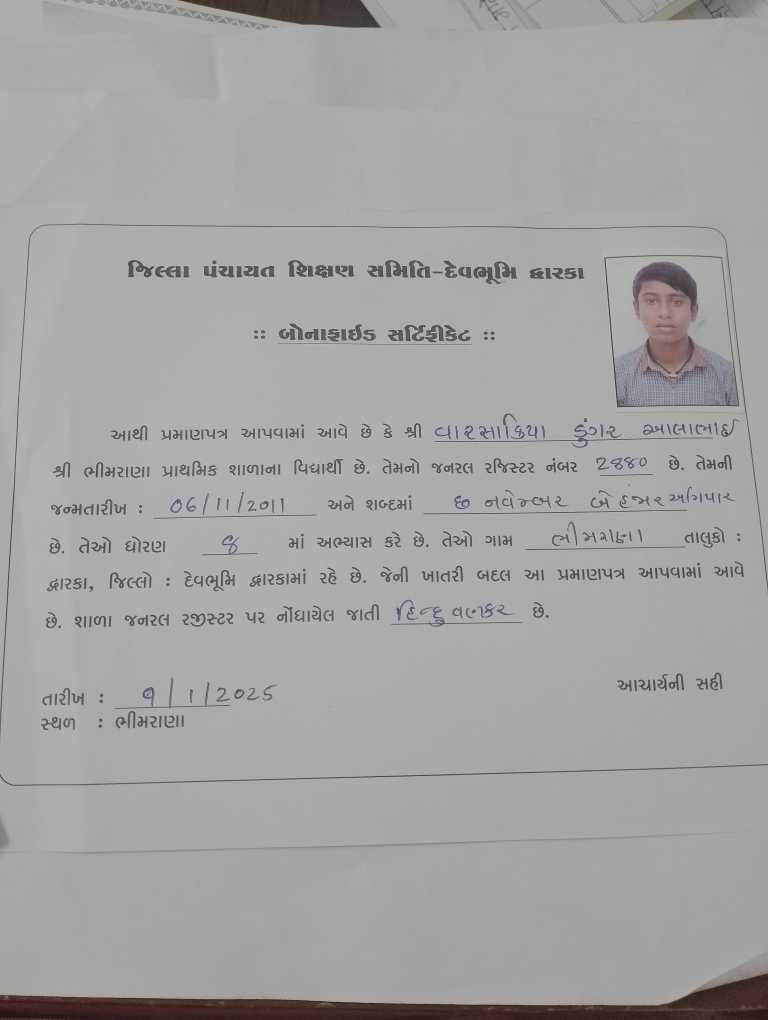 જિલ્લા પંચાયત શિક્ષણ સમિતિ-દેવભૂમિ દ્વારકા
:: બોનાફાઈડ સર્ટિફીકેટ ::
આથી પ્રમાણપત્ર આપવામાં આવે છે કે શ્રી વારસાકિયા ડુંગર આલાભાઈ
શ્રી ભીમરાણા પ્રાથમિક શાળાના વિદ્યાર્થી છે. તેમનો જનરલ રજિસ્ટર નંબર 2880 છે. તેમની
જન્મતારીખ : 06/11/2011 અને શબ્દમાં છ નવેમ્બર બે હજાર અગિયાર
છે. તેઓ ધોરણ 8 માં અભ્યાસ કરે છે. તેઓ ગામ ભીમરાણા તાલુકો :
દ્વારકા, જિલ્લો : દેવભૂમિ દ્વારકામાં રહે છે. જેની ખાતરી બદલ આ પ્રમાણપત્ર આપવામાં આવે
છે. શાળા જનરલ રજીસ્ટર પર નોંધાયેલ જાતી હિન્દુ વણકર છે.
તારીખ : 9/1/2025
આચાર્યની સહી
સ્થળ : ભીમરાણા